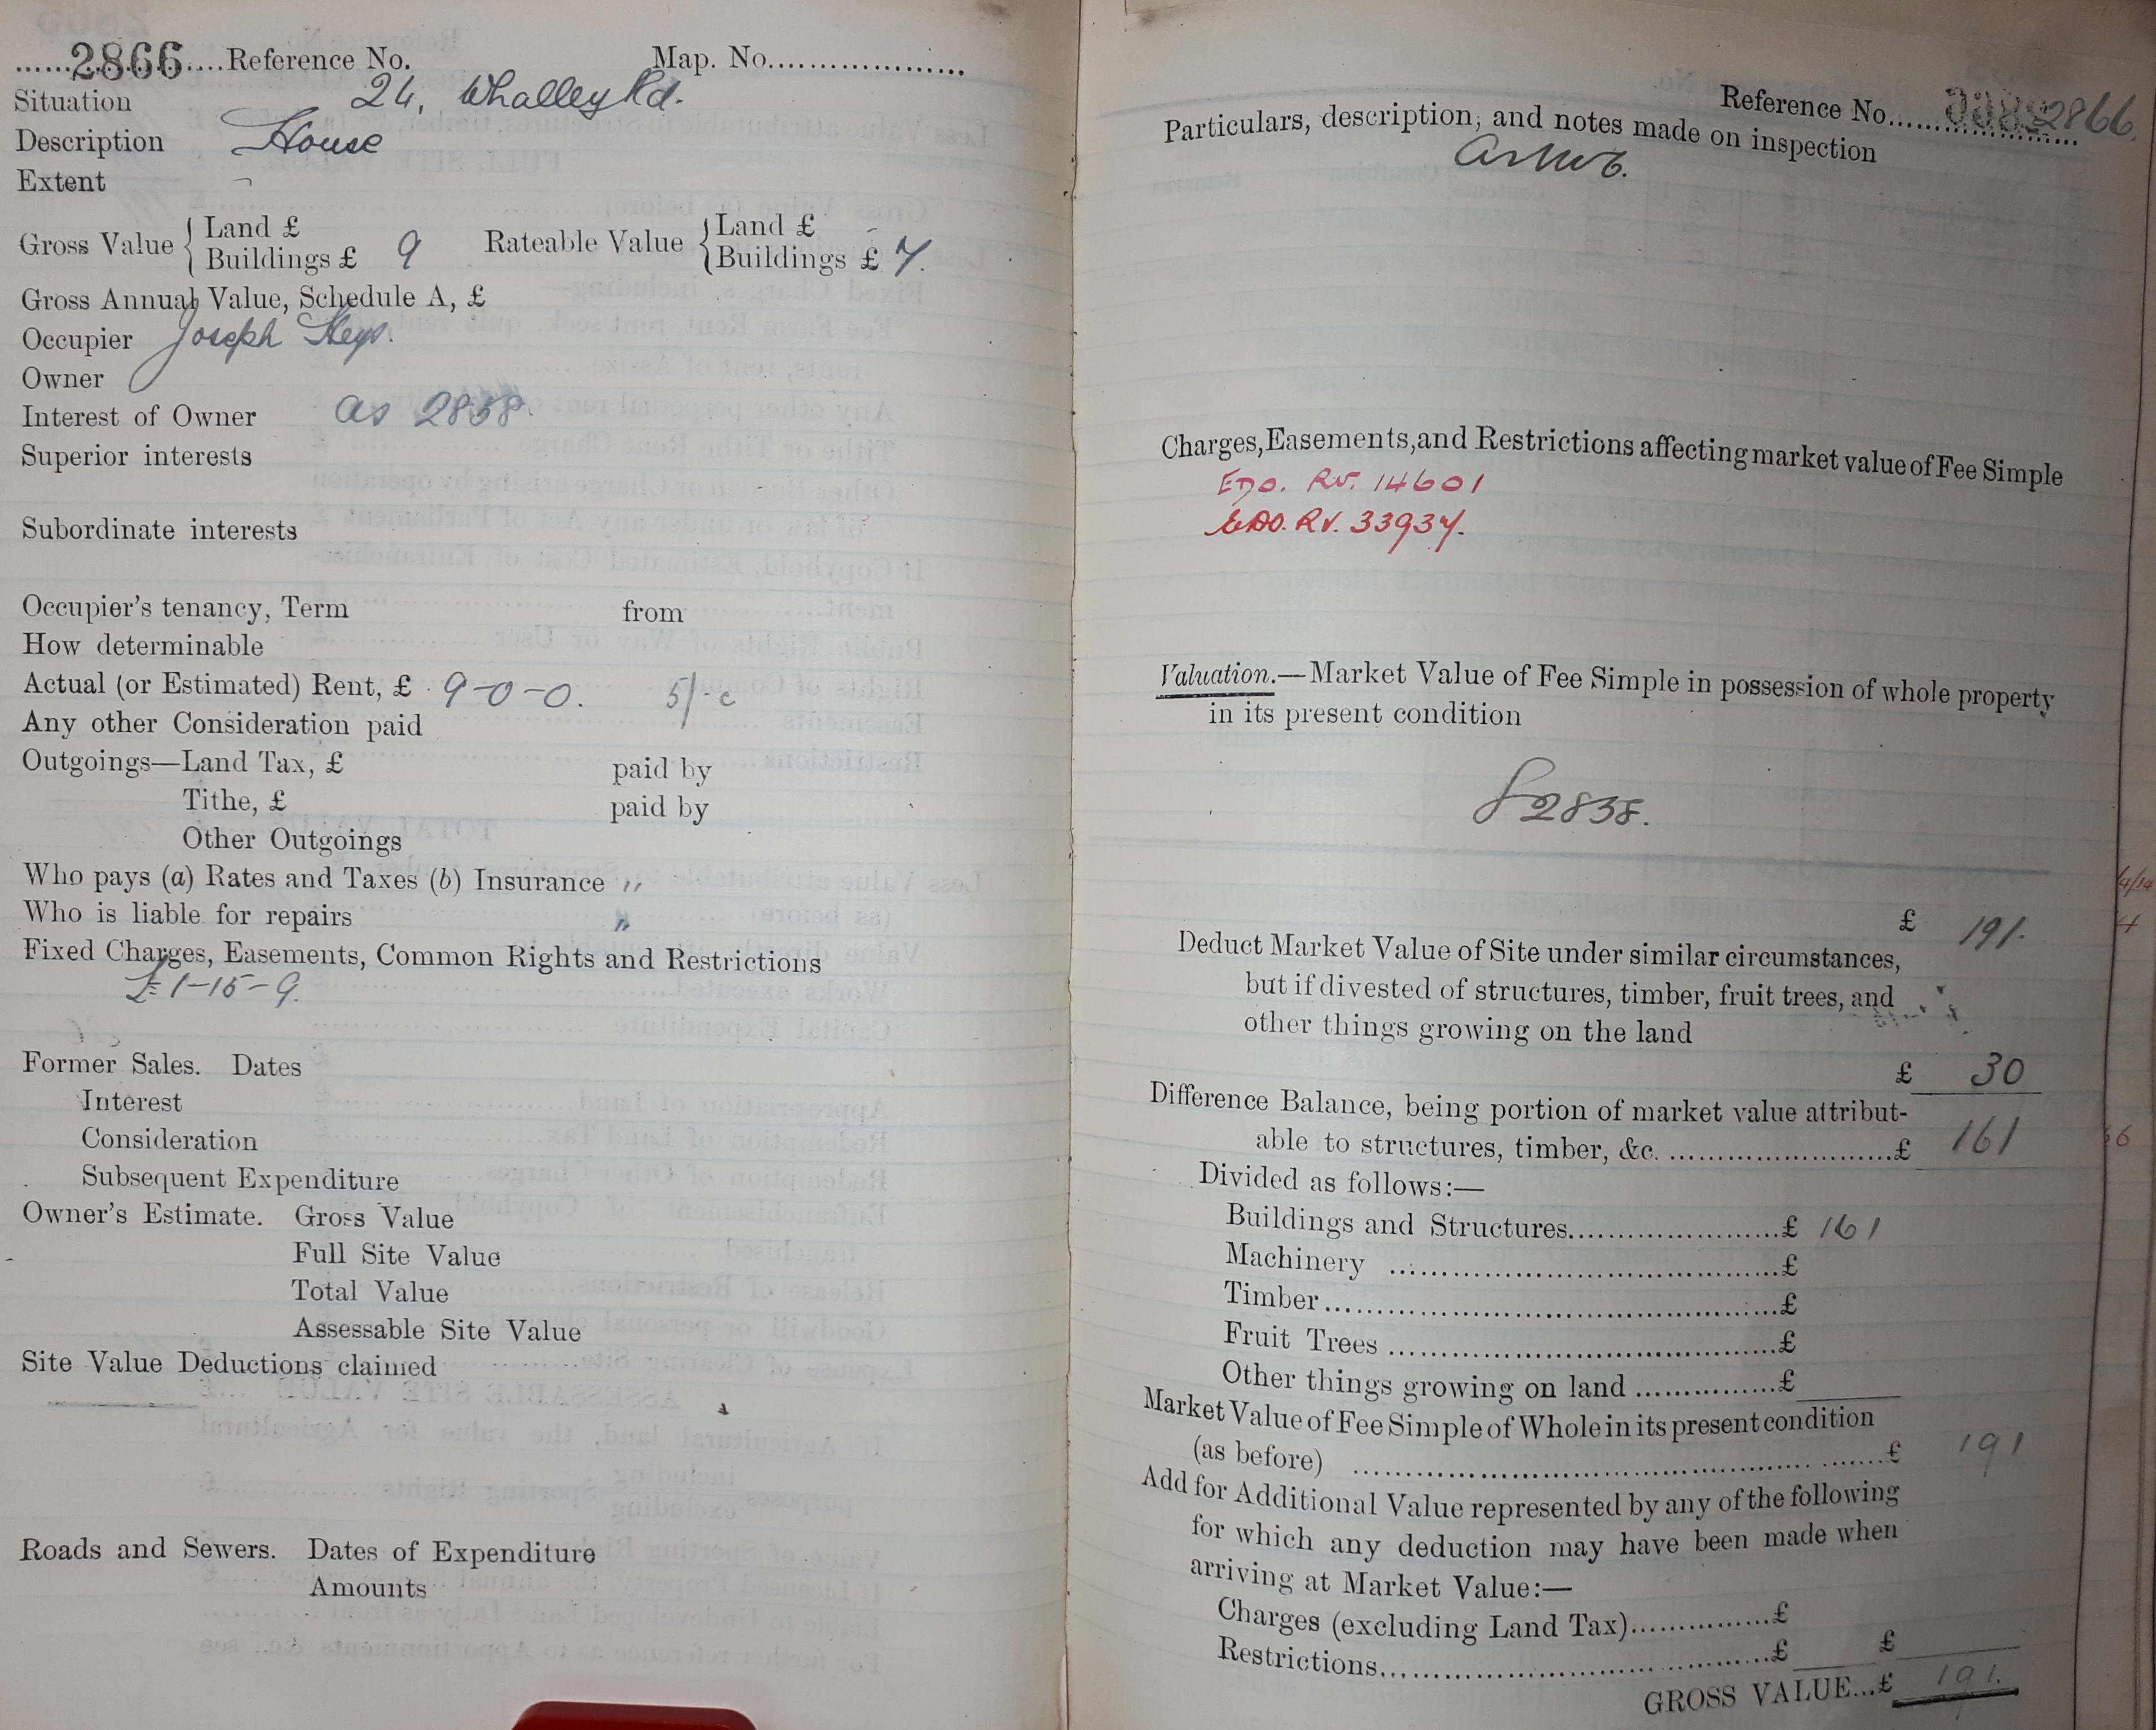 2866 Reference No. Map. No.
Situation 24, Whalley Rd.
Description House
Extent -
Gross Value { Land £
Buildings £ 9
Rateable Value { Land £ -
Buildings £ 7.
Gross Annual Value, Schedule A, £
Occupier Joseph Keys.
Owner
Interest of Owner as 2838.
Superior interests
Subordinate interests
Occupier's tenancy, Term from
How determinable
Actual (or Estimated) Rent, £ 9-0-0. 5/-c
Any other Consideration paid
Outgoings—Land Tax, £ paid by
Tithe, £ paid by
Other Outgoings
Who pays (a) Rates and Taxes (b) Insurance "
Who is liable for repairs "
Fixed Charges, Easements, Common Rights and Restrictions
£1-15-9.
Former Sales. Dates
Interest
Consideration
Subsequent Expenditure
Owner's Estimate. Gross Value
Full Site Value
Total Value
Assessable Site Value
Site Value Deductions claimed
Roads and Sewers. Dates of Expenditure
Amounts
Reference No. 2866.
Particulars, description, and notes made on inspection
Charges, Easements, and Restrictions affecting market value of Fee Simple
EDO. RV. 14601
EDO. RV. 33937.
Valuation.—Market Value of Fee Simple in possession of whole property
in its present condition
2838.
£ 191.
Deduct Market Value of Site under similar circumstances,
but if divested of structures, timber, fruit trees, and
other things growing on the land
£ 30
Difference Balance, being portion of market value attribut-
able to structures, timber, &c. £ 161
Divided as follows:—
Buildings and Structures £ 161
Machinery £
Timber £
Fruit Trees £
Other things growing on land £
Market Value of Fee Simple of Whole in its present condition
(as before) £ 191
Add for Additional Value represented by any of the following
for which any deduction may have been made when
arriving at Market Value:—
Charges (excluding Land Tax) £
Restrictions £ £
GROSS VALUE...£ 191.